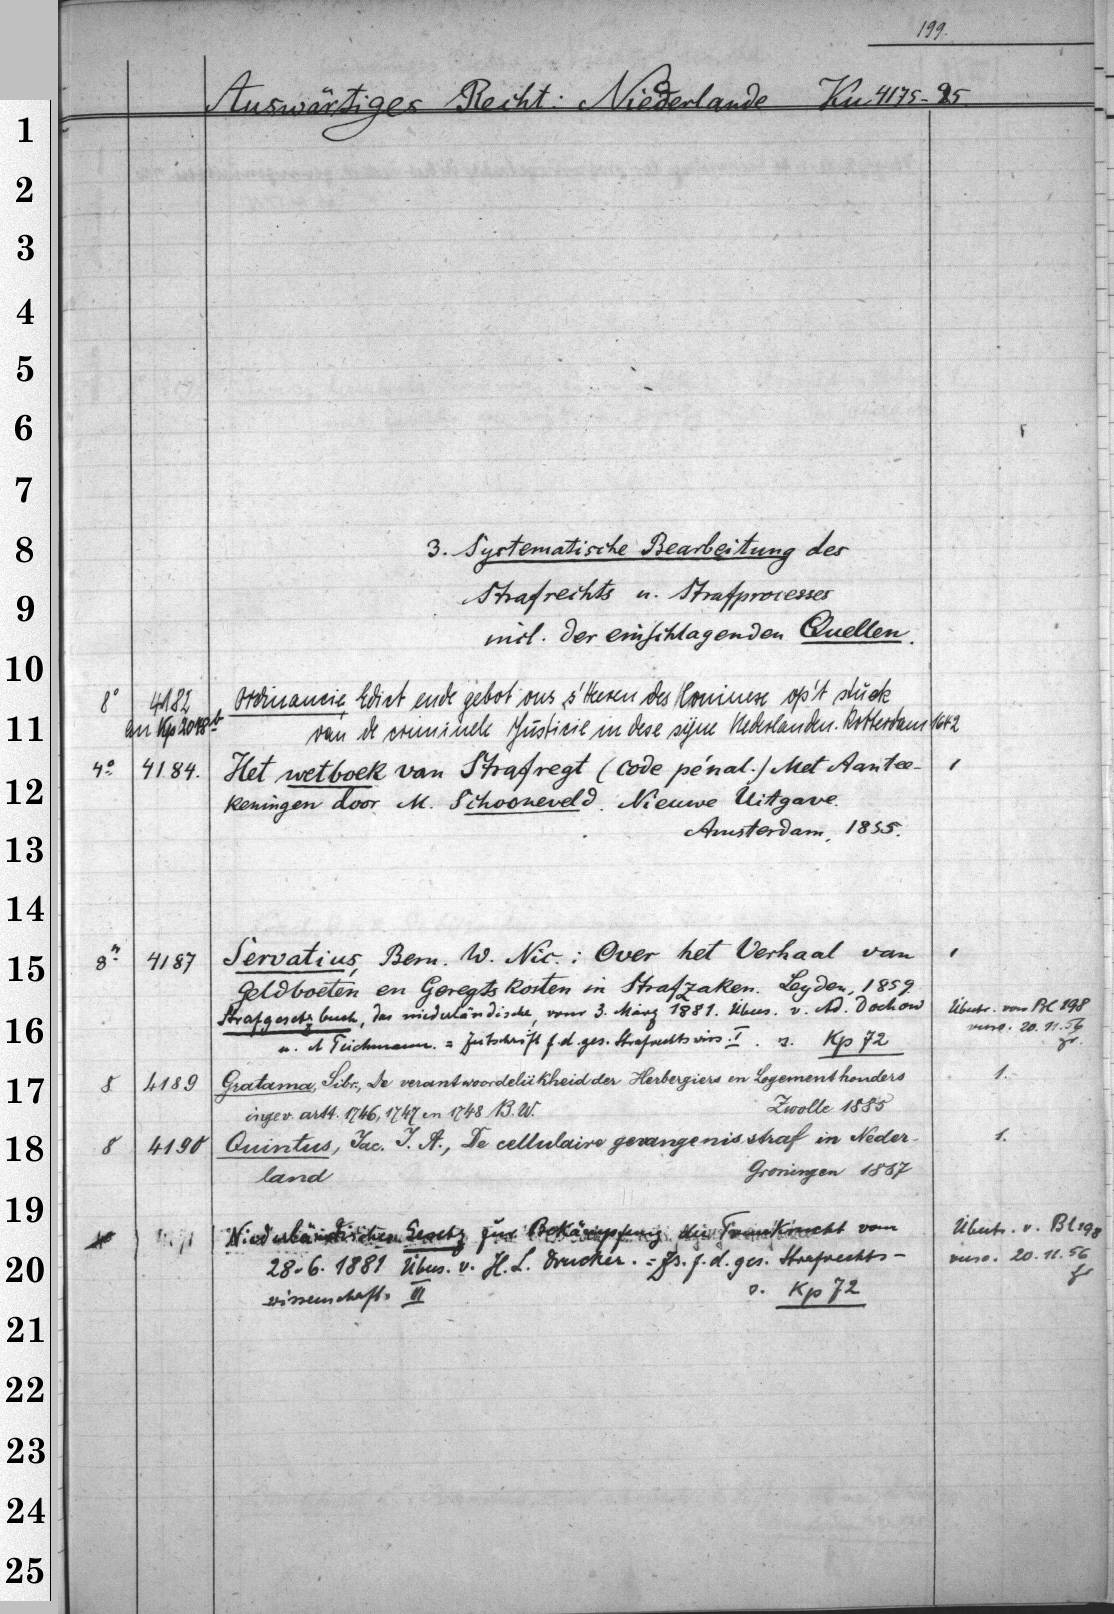 199.
Auswärtiges Recht: Niederlande Ku 4175-95
1
2
3
4
5
6
7
8
3. Systematische Bearbeitung des
9
Strafrechts u. Strafprocesses
incl. der einschlagenden Quellen.
10
8° 4182 Ordinancie, Edict ende gebot ons s'Heeren des Coninexe op't stuck
11
an Kp 2018b van de criminele Justicie in dese sijne Nederlanden. Rotterdam 1642
4° 4184. Het wetboek van Strafregt (Code pénal.) Met Aantee- 1
12
keningen door M. Schooneveld. Nieuwe Uitgave.
Amsterdam, 1855.
13
14
8° 4187 Servatius, Bern. W. Nic.: Over het Verhaal van 1
15
Geldboeten en Geregtskosten in Strafzaken. Leyden, 1859
Strafgesetzbuch, das niederländische, vom 3. März 1881. Übers. v. Ad. Dochow Übertr. von Bl 198
16
u. A Teichmann. = Zeitschrift f. d. ges. Strafrechtswiss. I. s. Kp 72 20.11.56
17
8 4189 Gratama, Sibr., De verantwoordelijkheid der Herbergiers en Logementhouders 1.
ingev. artt. 1746, 1747 en 1748 B.W. Zwolle 1885
18
8 4190 Quintus, Jac. J. A., De cellulaire gevangenisstraf in Neder- 1.
land Groningen 1887
19
Niederländisches Gesetz zur Bekämpfung der Trunksucht vom Übertr. v. Bl 198
20
28.6.1881 Übers. v. H. L. Drucker. = Zs. f. d. ges. Strafrechts- 20.11.56
wissenschaft. III s. Kp 72
21
22
23
24
25